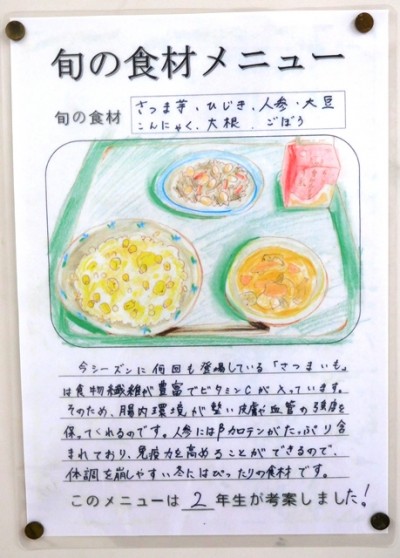 旬の食材メニュー
旬の食材
さつま芋、ひじき、人参・大豆
こんにゃく、大根、ごぼう
今シーズンに何回も登場している「さつまいも」
は食物繊維が豊富でビタミンCが入っています。
そのため、腸内環境が整い皮膚や血管の強度を
保ってくれるのです。人参にはβカロテンがたっぷり含
まれており、免疫力を高めることができるので、
体調を崩しやすい冬にはぴったりの食材です。
このメニューは 2 年生が考案しました！